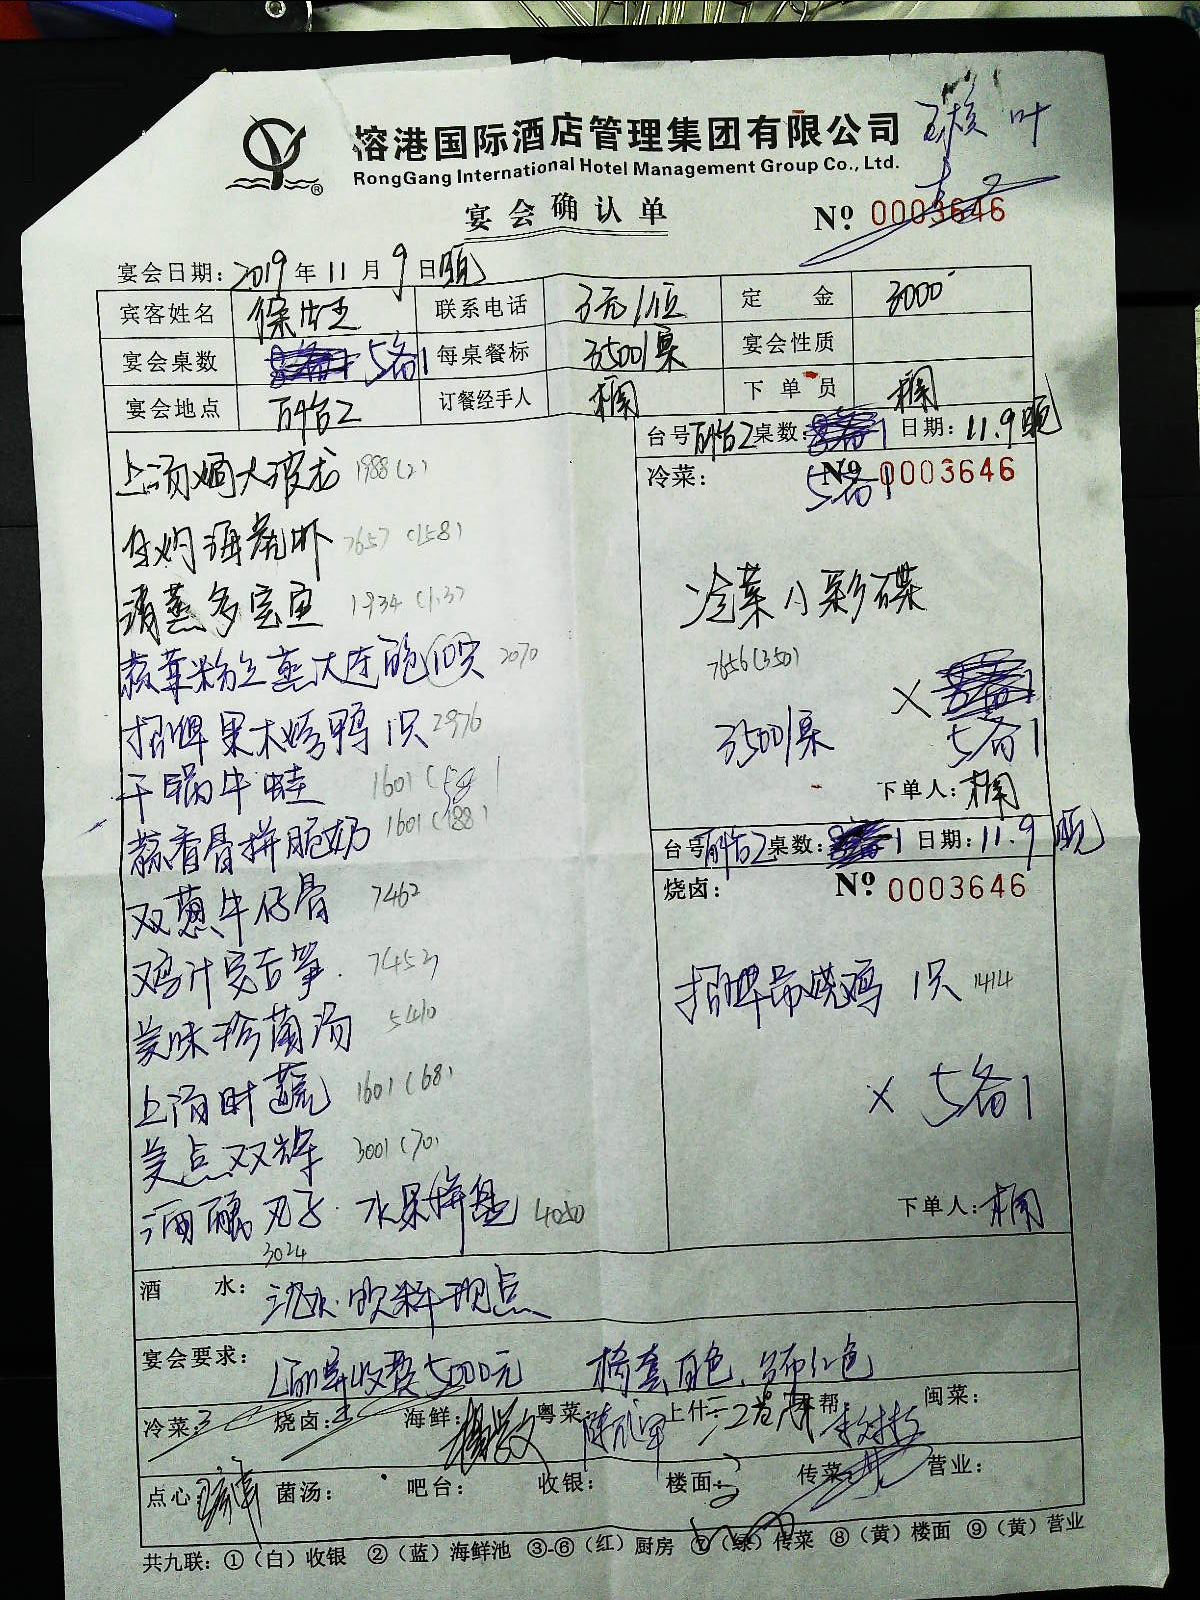 榕港国际酒店管理集团有限公司
RongGang International Hotel Management Group Co., Ltd.
®
宴会确认单
№ 0003646
宴会日期: 2019 年 11 月 9 日 晚
宾客姓名 联系电话 3元/位 定金 3000
宴会桌数 5备1 每桌餐标 3500/桌 宴会性质
宴会地点 订餐经手人 下单员
上汤焗大波龙 1988(2)
白灼海虎虾 7657 (158)
清蒸多宝鱼 1934
蒜茸粉丝蒸大连鲍10只 2070
招牌果木烤鸭 1只 2976
干锅牛蛙 1601
蒜香骨拼脆奶 1601 (88)
双葱牛仔骨 7462
鸡汁安吉笋
美味珍菌汤
上汤时蔬 1601 (68)
美点双辉 3001 (70)
酒酿丸子 水果拼盘 4050
3024
台号 桌数: 1 日期: 11.9晚
冷菜: № 0003646
5备1
冷菜小彩碟
7656(350)
×
3500/桌 5备1
下单人:
台号 桌数: 1 日期: 11.9 晚
烧卤: № 0003646
招牌吊烧鸡 1只 1414
× 5备1
下单人:
酒水: 酒水.饮料现点
宴会要求: 收费5000元 椅套白色、台布红色
冷菜: 烧卤: 海鲜: 粤菜: 上什: 帮 闽菜:
点心 菌汤: 吧台: 收银: 楼面: 传菜: 营业:
共九联: ①(白)收银 ②(蓝)海鲜池 ③-⑥(红)厨房 ⑦(绿)传菜 ⑧(黄)楼面 ⑨(黄)营业